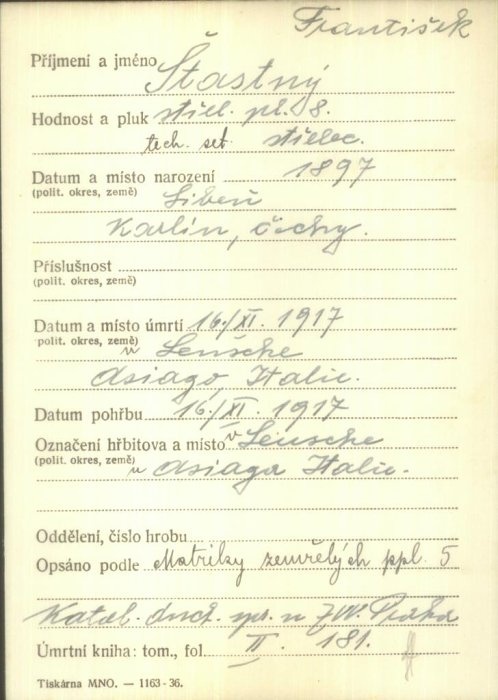 František
Příjmení a jméno Šťastný
Hodnost a pluk střel. pl. 8.
tech. set. střelec.
Datum a místo narození 1897
(polit. okres, země) Libeň
Karlín, Čechy.
Příslušnost
(polit. okres, země)
Datum a místo úmrtí 16./XI. 1917
polit. okres, země) u Leusche
Asiago, Italie.
Datum pohřbu 16./XI. 1917
Označení hřbitova a místo v Leusche
(polit. okres, země) u Asiaga Italie.
Oddělení, číslo hrobu
Opsáno podle Matriky zemřelých ppl. 5
Katol. duch. spr. u ZVV. Praha
Úmrtní kniha: tom., fol. II. 181.
Tiskárna MNO. — 1163-36.